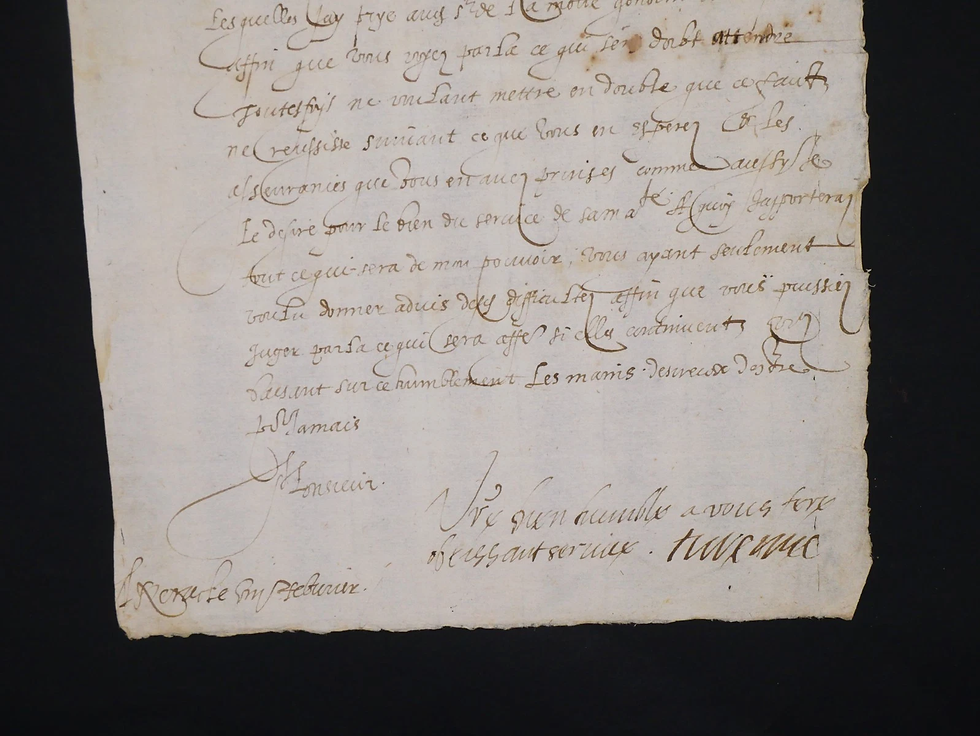 Lesquelles Jay prye aud Sr de La mothe
affin que vous voyez par La ce qui sen doibt attendre
Toutesfois ne voulant mettre en double que ce faict
ne reussisse suivant ce que vous en esperez Et les
asseurances que vous en avez prinses comme aussy Je
Le desire pour le bien du service de sa mate A quoy Japporteray
tout ce qui sera de mon pouvoir, vous ayant seulement
voulu donner advis des difficultez affin que vous puissiez
Juger par La ce qui sera affe si elles continuent
baisant sur ce humblement Les mains desireux destre
Jamais
Monsieur.
Vre bien humble a vous fere
obeissant servise. turenne
A Nerac le febvrier.